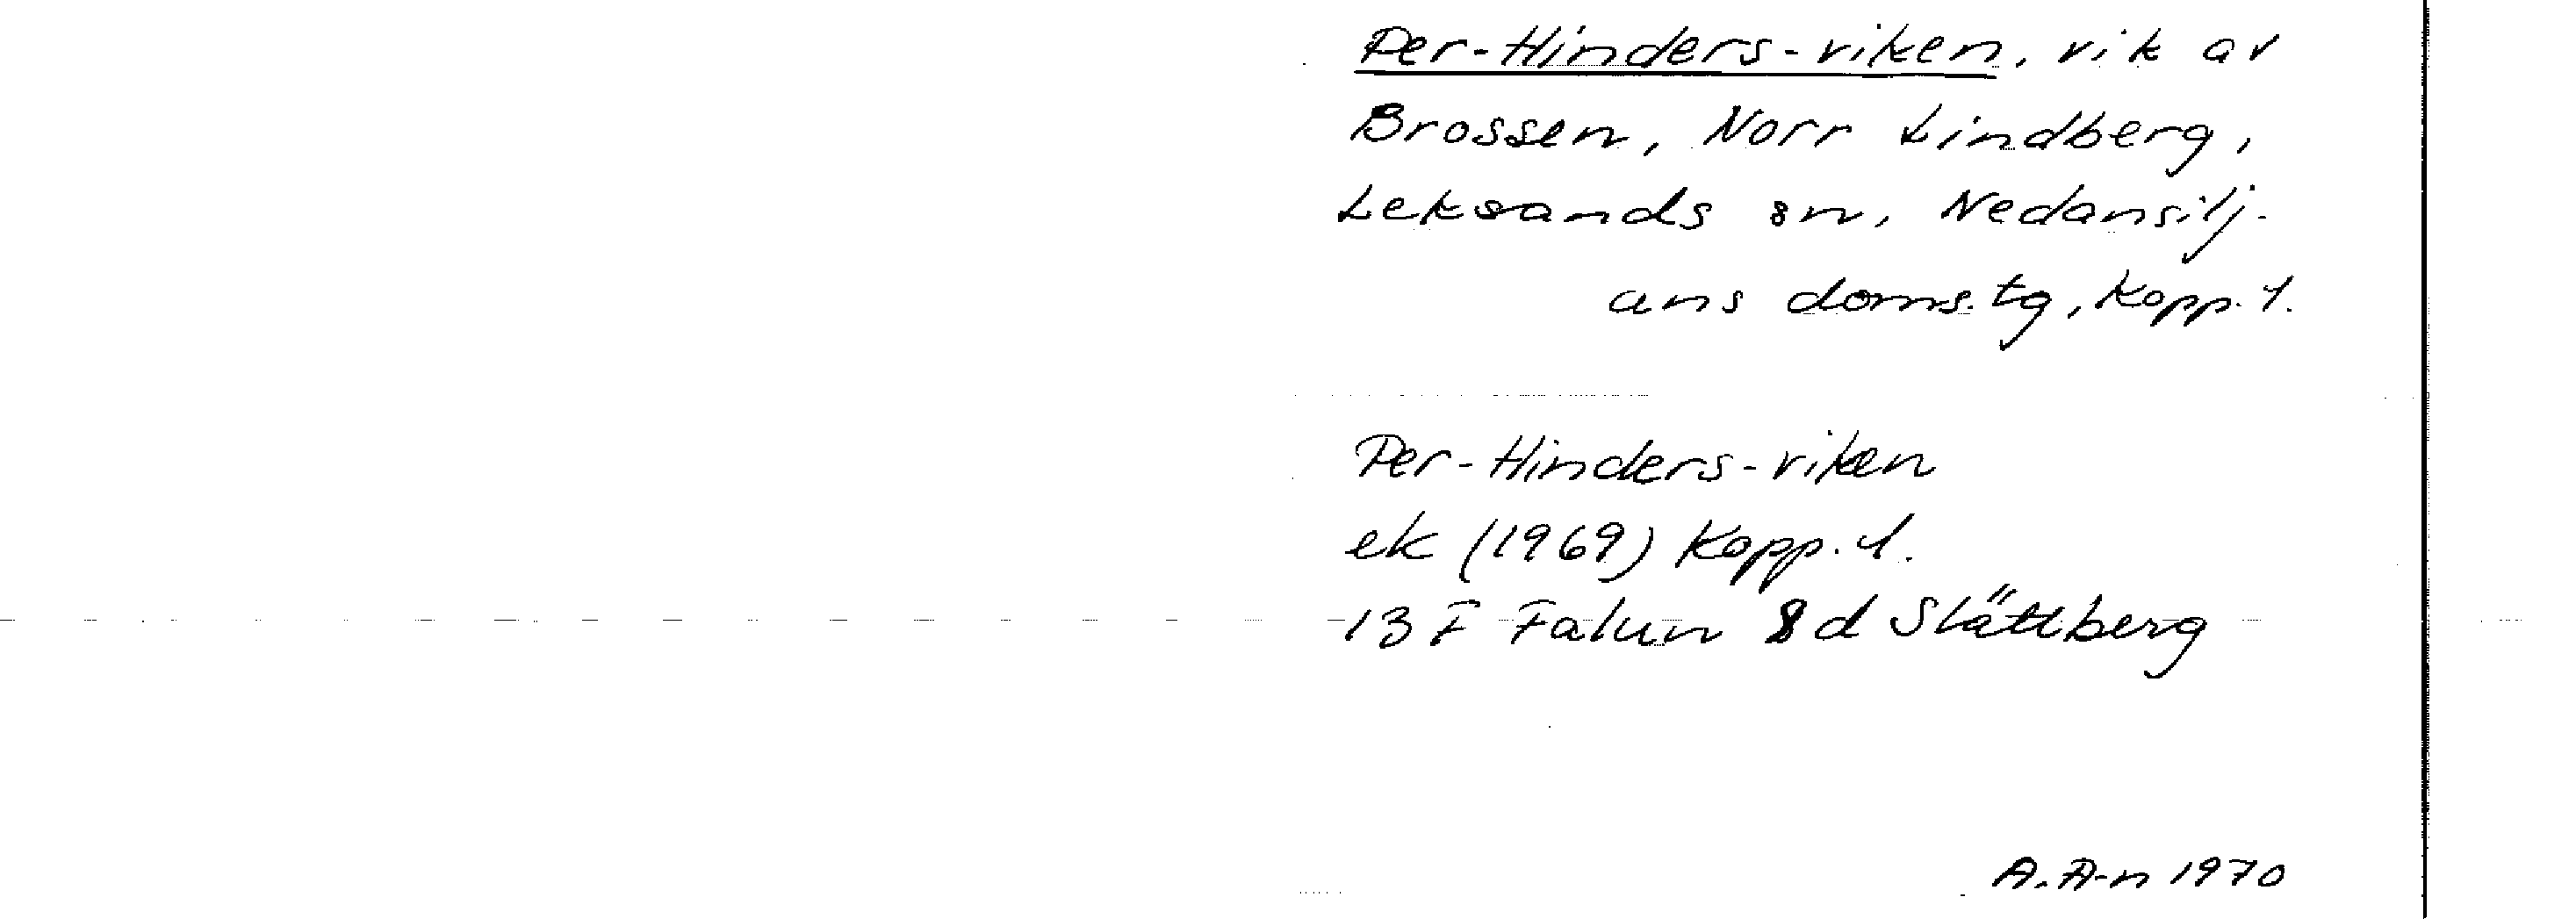 Per-Hinders-viken, vik av
Brossen, Norr Lindberg,
Leksands sn, Nedansilj-
ans doms.tg, Kopp. l.
Per-Hinders-viken
ek (1969) Kopp. l.
13 F Falun 8 d Slättberg
A. A-n 1970